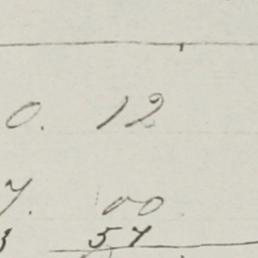 0. 12
7. 00
3 57